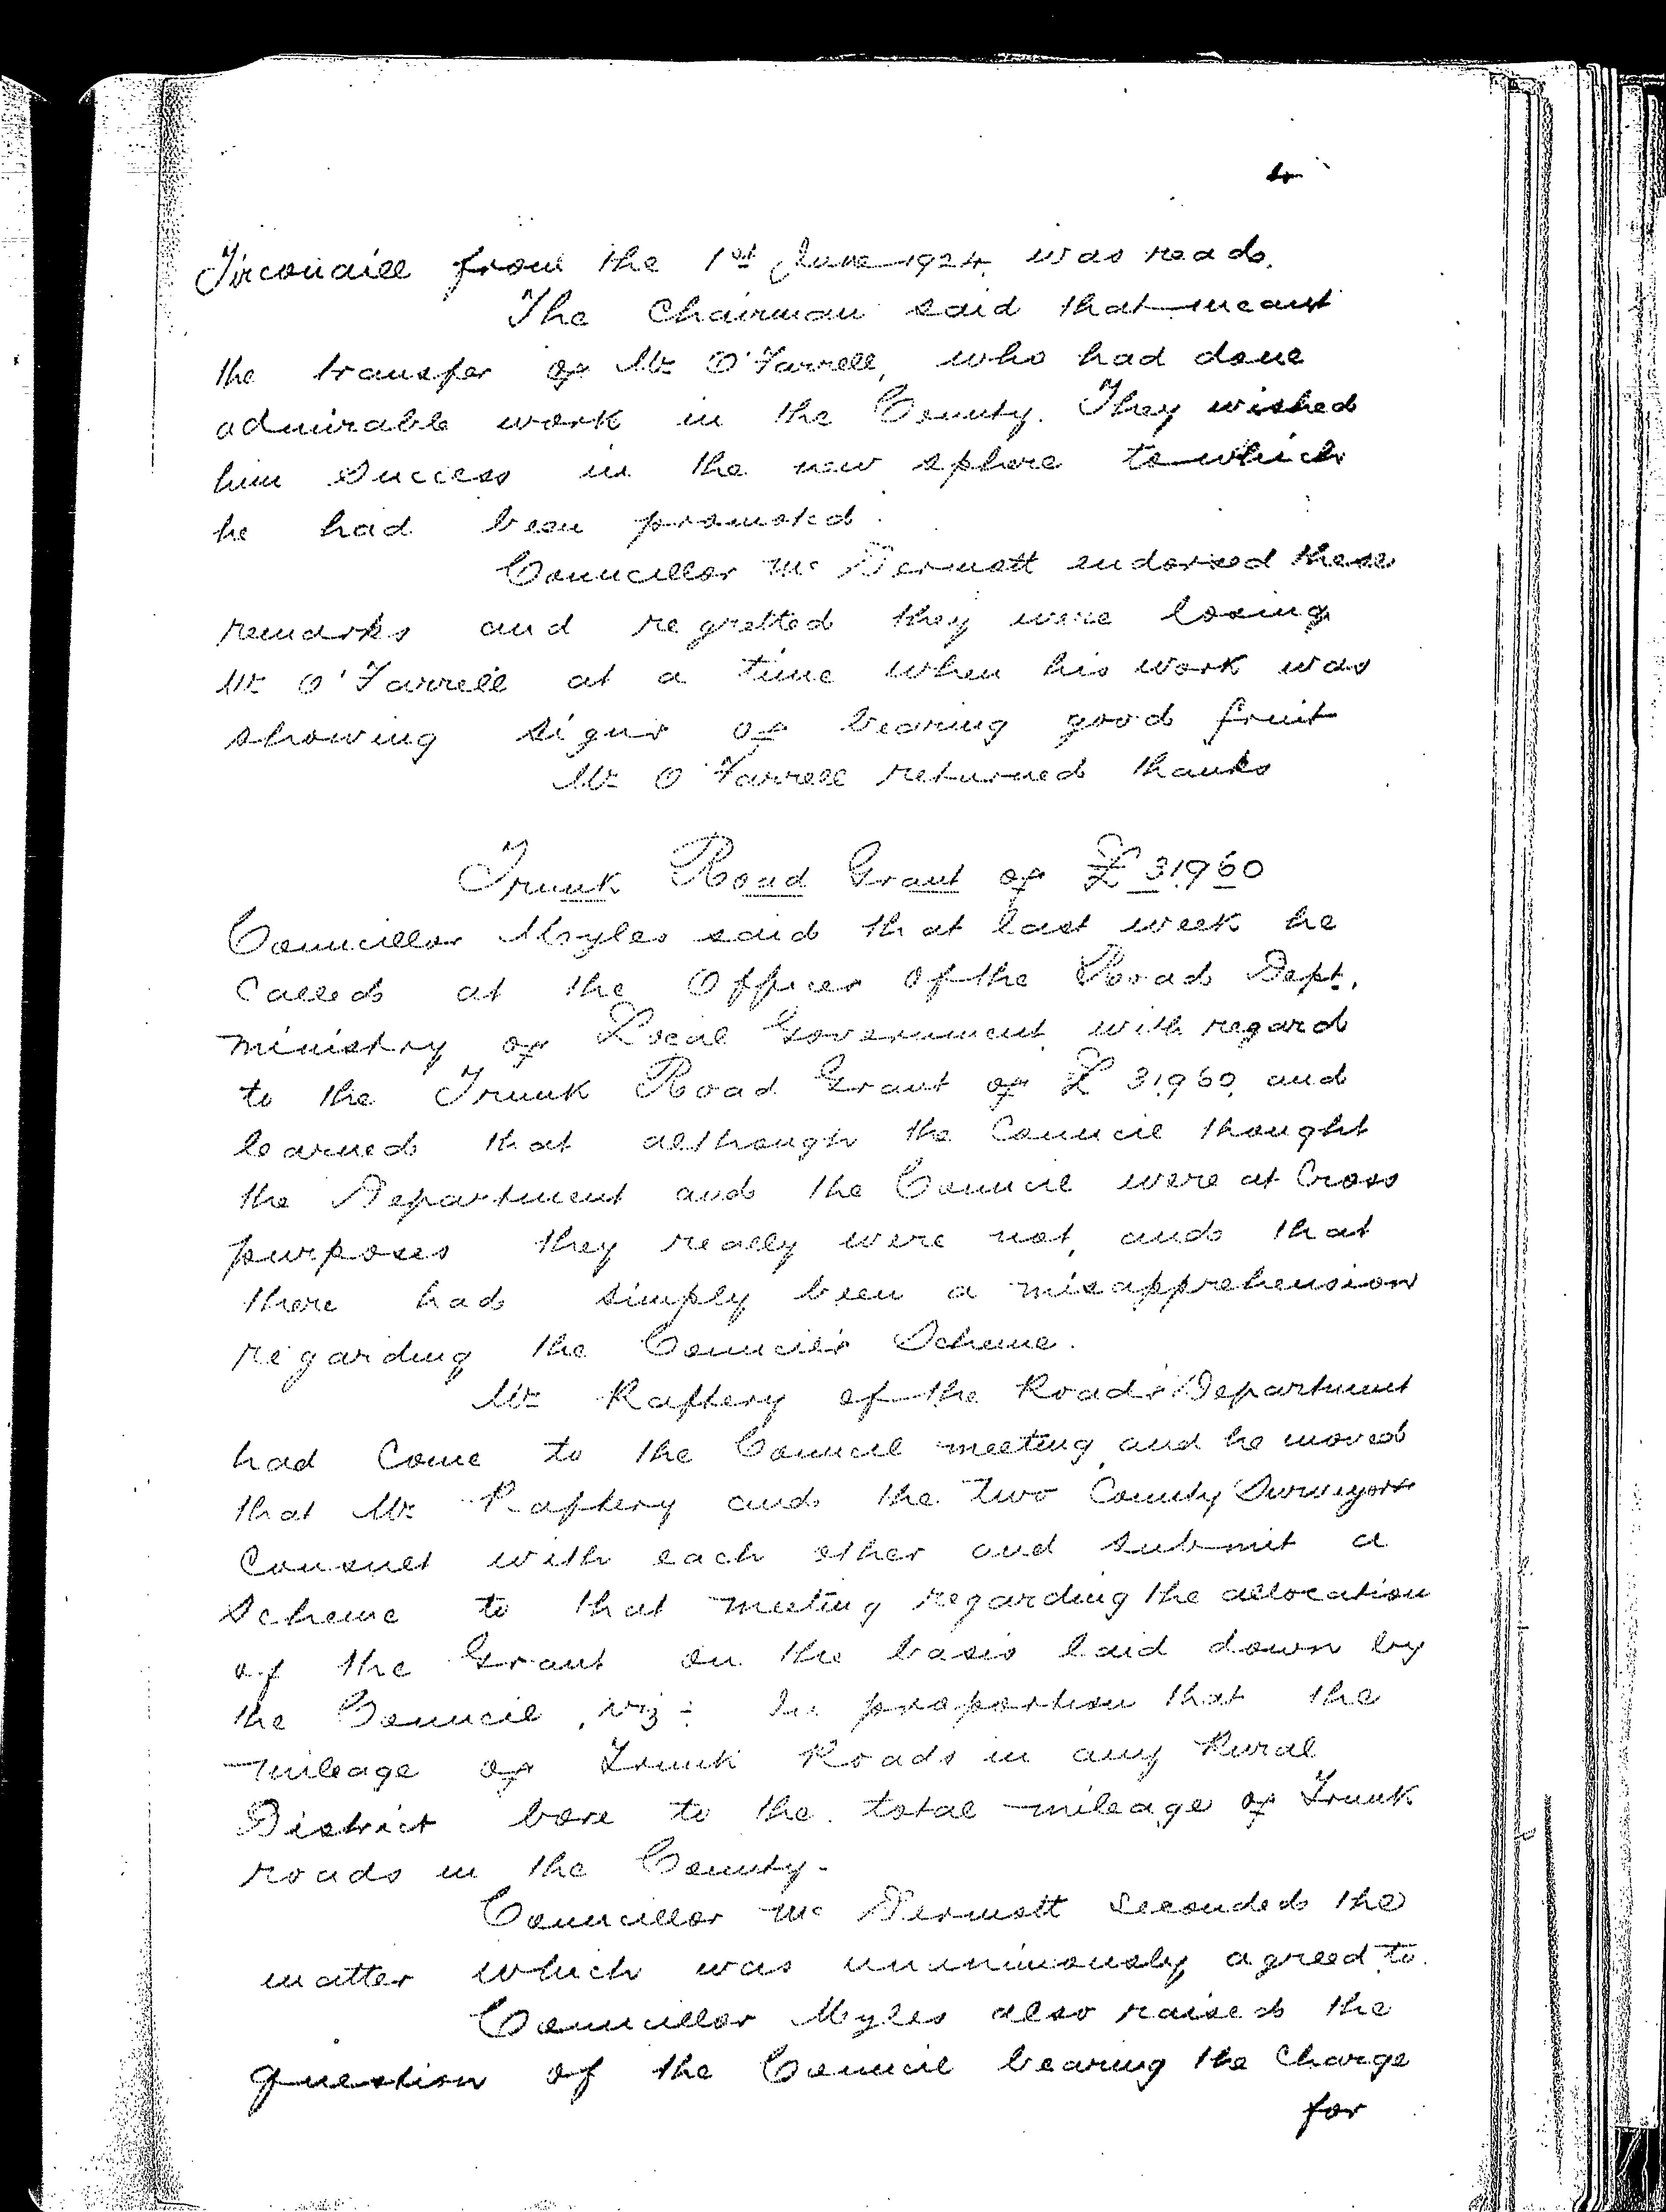 to
Tirconaill from the 1st June 1924, was read.
The Chairman said that meant
the transfer of Mr O'Farrell, who had done
admirable work in the County. They wished
him success in the new sphere to which
he had been promoted.
Councillor McDermott endorsed these
remarks and regretted they were losing
Mr O'Farrell at a time when his work was
showing signs of bearing good fruit
Mr O'Farrell returned thanks
Trunk Road Grant of £31960
Councillor Myles said that last week he
called at the Offices of the Roads Dept.
Ministry of Local Government with regard
to the Trunk Road Grant of £31,960, and
learned that although the Council thought
the Department and the Council were at Cross
purposes they really were not, and that
there had simply been a misapprehension
regarding the Council's Scheme.
Mr Raftery of the Roads Department
had come to the Council meeting and he moved
that Mr Raftery and the two County Surveyors
consult with each other and submit a
Scheme to that meeting regarding the allocation
of the Grant on the basis laid down by
the Council, viz:- In proportion that the
mileage of Trunk Roads in any Rural
District bore to the total mileage of Trunk
roads in the County.
Councillor McDermott seconded the
matter which was unanimously agreed to.
Councillor Myles also raised the
question of the Council bearing the charge
for